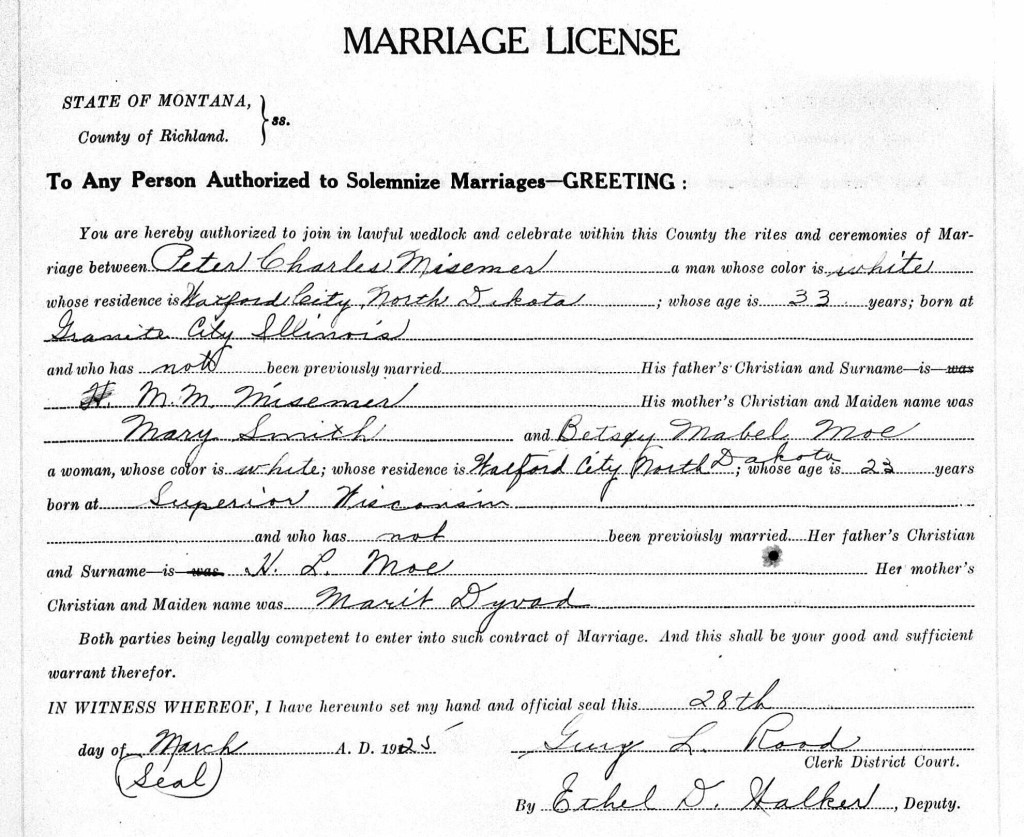 MARRIAGE LICENSE
STATE OF MONTANA,
County of Richland. } ss.
To Any Person Authorized to Solemnize Marriages—GREETING :
You are hereby authorized to join in lawful wedlock and celebrate within this County the rites and ceremonies of Mar-
riage between Peter Charles Misemer a man whose color is white
whose residence is Watford City, North Dakota ; whose age is 33 years; born at
Granite City Illinois
and who has not been previously married His father's Christian and Surname—is—was
M. M. Misemer His mother's Christian and Maiden name was
Mary Smith and Betsey Mabel Moe
a woman, whose color is white; whose residence is Watford City North Dakota; whose age is 23 years
born at Superior Wisconsin
and who has not been previously married Her father's Christian
and Surname—is—was H. L. Moe Her mother's
Christian and Maiden name was Marit Dyvad
Both parties being legally competent to enter into such contract of Marriage. And this shall be your good and sufficient
warrant therefor.
IN WITNESS WHEREOF, I have hereunto set my hand and official seal this 28th
day of March A. D. 1925 L. Rood
(Seal) Clerk District Court.
By Ethel D. Walker, Deputy.